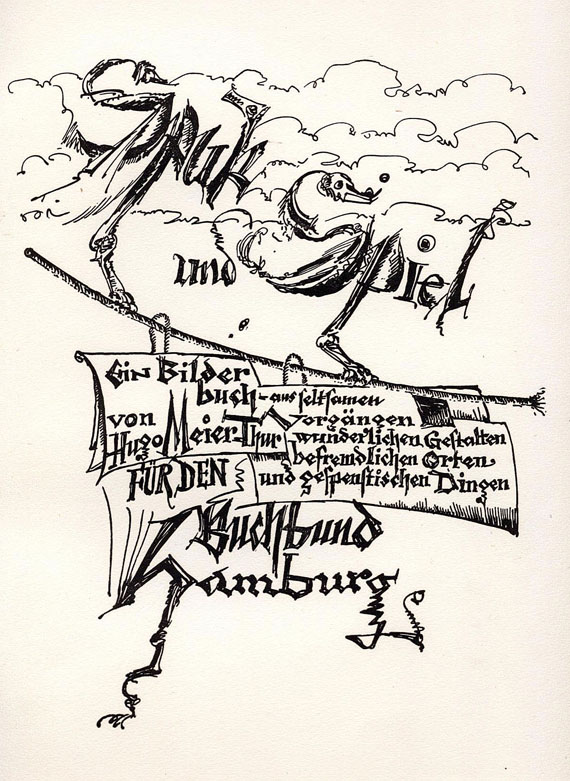 Spuk
und Spiel
Ein Bilder
buch - aus seltsamen
von Vorgängen
Hugo Meier-Thur wunderlichen Gestalten
befremdlichen Orten
FÜR DEN und gespenstischen Dingen
Buchbund
Hamburg